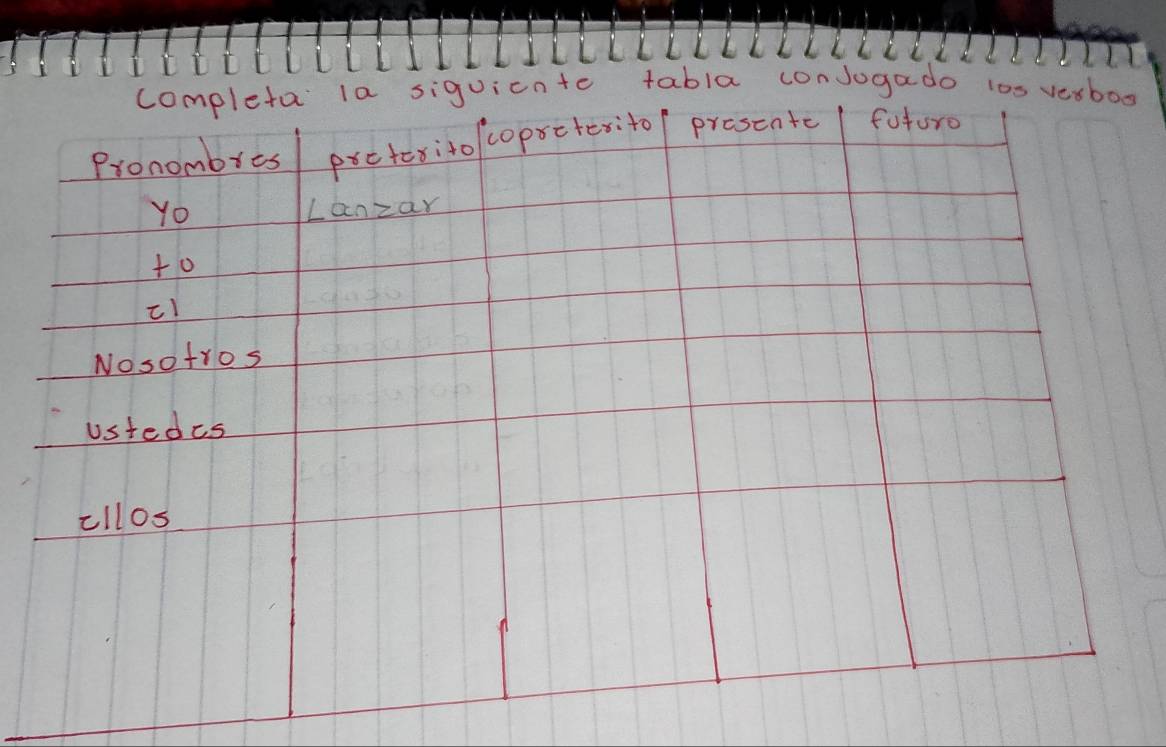 completa la siguiente tabla conJugado los verbos
Pronombres preterito copreterito presente futuro
Yo Lanzar
tu
el
Nosotros
ustedes
ellos